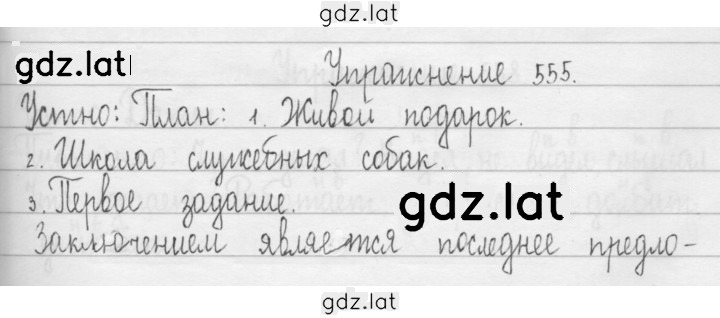 gdz.lat
gdz.lat
Упражнение 555.
Устно: План: 1. Живой подарок.
2. Школа служебных собак.
3. Первое задание.
gdz.lat
Заключением является последнее предло-
gdz.lat